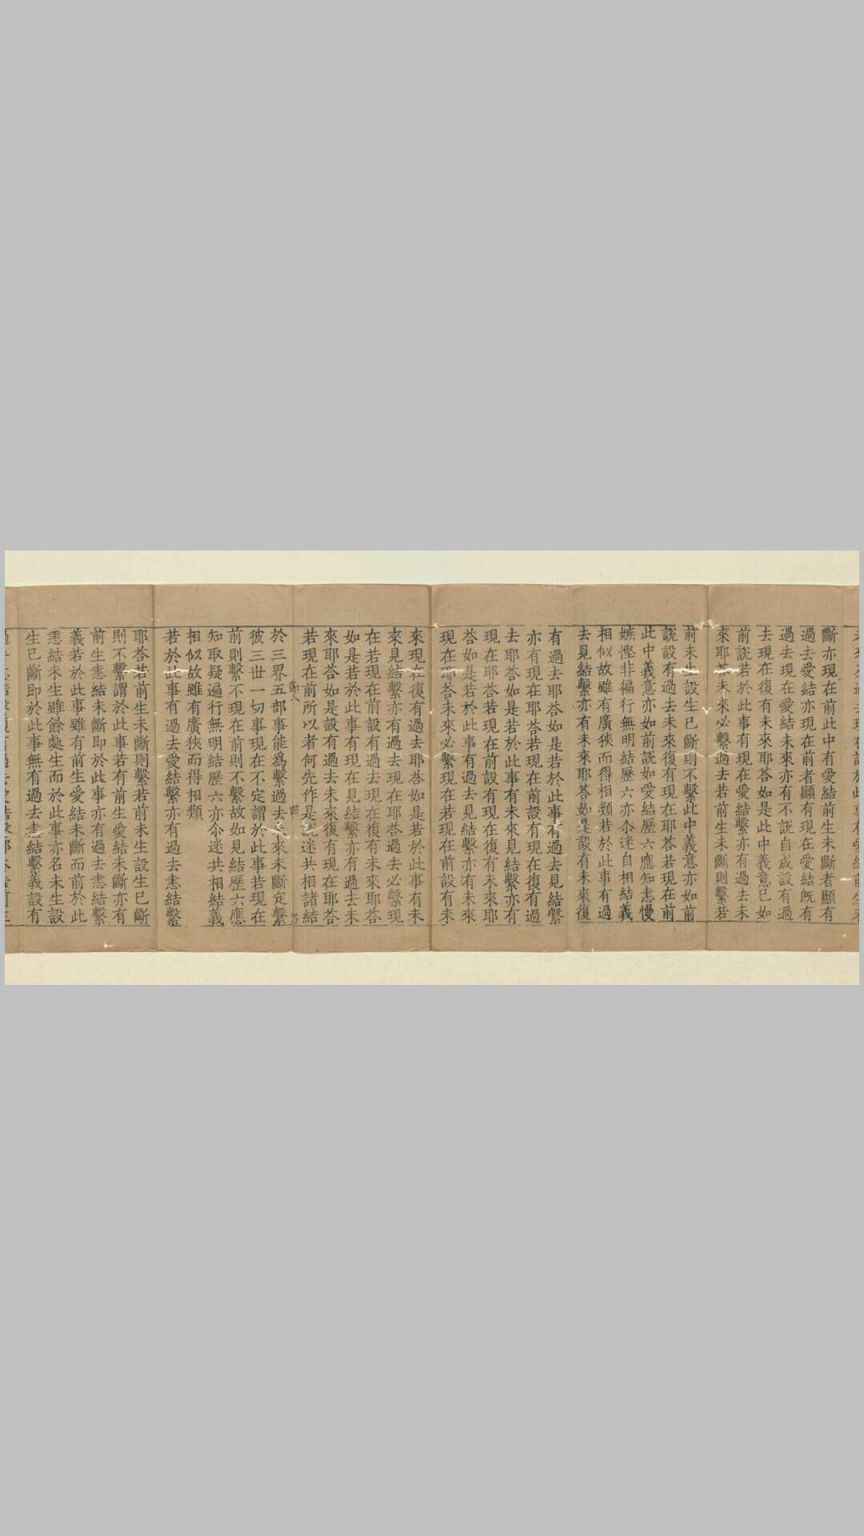 斷亦現在前此中有愛結前生未斷者顯有
過去愛結亦現在前者顯有現在愛結旣有
過去現在愛結未來亦有不說自成設有過
去現在復有未來耶荅如是此中義意已如
前說若於此事有現在愛結繫亦有過去未
來耶荅未來必繫過去若前生未斷則繫若
前未生設生已斷則不繫此中義意亦如前
說設有過去未來復有現在耶荅若現在前
此中義意亦如前說如愛結歷六應知恚慢
嫉慳非徧行無明結歷六亦尒迷自相結義
相似故雖有廣狹而得相類若於此事有過
去見結繫亦有未來耶荅如是設有未來復
有過去耶荅如是若於此事有過去見結繫
亦有現在耶荅若現在前設有現在復有過
去耶荅如是若於此事有未來見結繫亦有
現在耶荅若現在前設有現在復有未來耶
荅如是若於此事有過去見結繫亦有未來
現在耶荅未來必繫現在若現在前設有未
來現在復有過去耶荅如是若於此事有未
來見結繫亦有過去現在耶荅過去必繫現
在若現在前設有過去現在復有未來耶荅
如是若於此事有現在見結繫亦有過去未
來耶荅如是設有過去未來復有現在耶荅
若現在前所以者何先作是說迷共相諸結
於三界五部事能爲繫過去未來未斷定繫
彼三世一切事現在不定謂於此事若現在
前則繫不現在前則不繫故如見結歷六應
知取疑遍行無明結歷六亦尒迷共相結義
相似故雖有廣狹而得相類
若於此事有過去愛結繫亦有過去恚結繫
耶荅若前生未斷則繫若前未生設生已斷
則不繫謂於此事若有前生愛結未斷亦有
前生恚結未斷即於此事亦有過去恚結繫
義若於此事雖有前生愛結未斷而前於此
恚結未生雖餘處生而於此事亦名未生設
生已斷即於此事無有過去恚結繫義設有